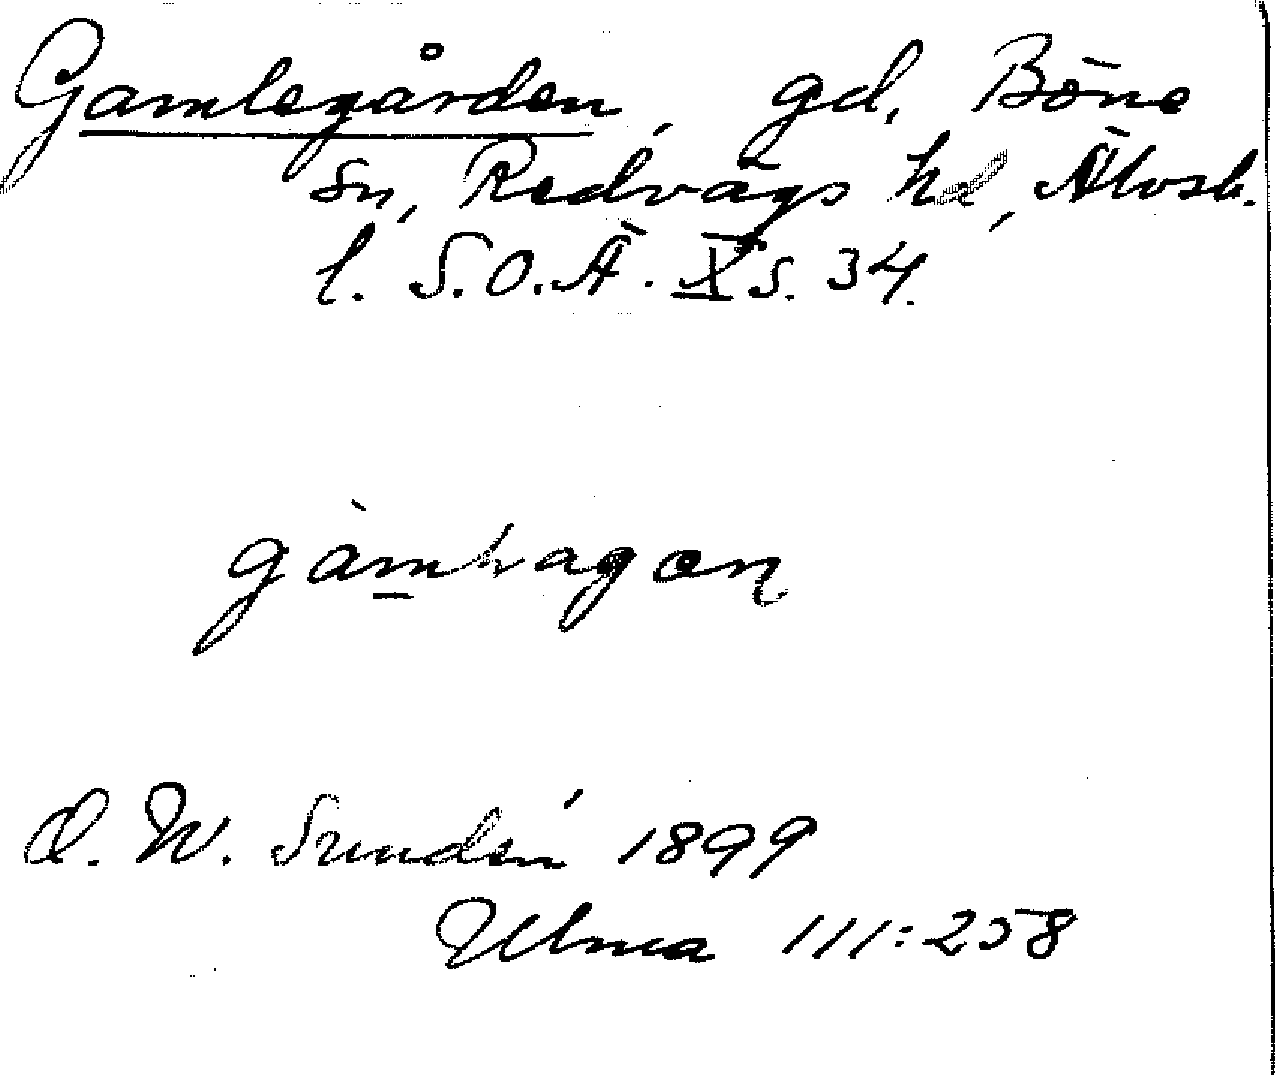 Gamlegården, gd, Böne
sn, Redvägs hd, Älvsb.
l. S.O.Ä. X s. 34.
gàmhagan
D. W. Sundén 1899
Ulma 111:258